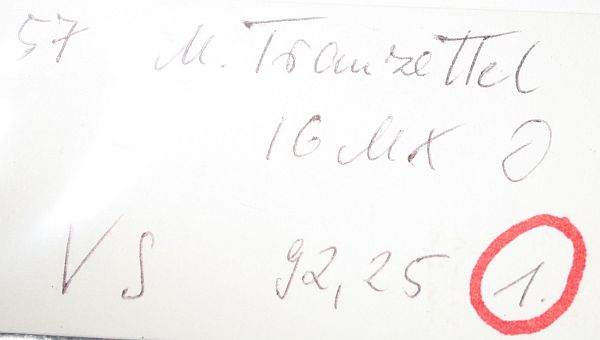 57 M. Tranzettel
IG MX O
VS 92,25 1.